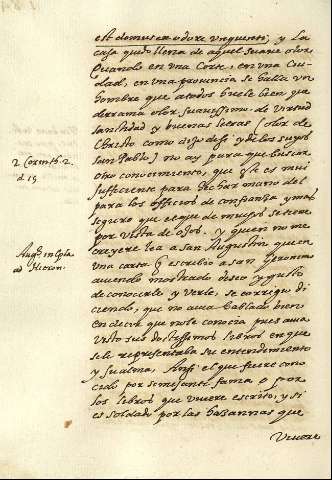 est domus ex odore unguenti, y La
casa quedo llena de aquel suave olor.
Quando en una Corte, en una Ciu-
dad, en una provincia se halla un
hombre que a todos huele bien, que
derrama olor suavissimo de virtud
santidad y buenas letras (olor de
Christo como dijo de si y de los suyos
san Pablo) no ay para que buscar
otro conocimiento, que este es mui
sufficiente para hechar mano del
para los officios de confianza y mas
seguro que el que de muchos se tiene
por vista de ojos. y quien no me
creyere lea a san Augustin que en
una carta q escribio a san Geronimo
aviendo mostrado deseo y gusto
de conocerle y verle, se corrigio di-
ciendo, que no avia hablado bien
en decir que no le conocia pues avia
visto sus doctissimos libros en que
se le representaba su entendimiento
y su alma. Ansi el que fuere cono-
cido por semejante fama o por
los libros que uviere escrito, y si
es soldado por las hazannas que
uviere
2 Corinth. 2.
d 15
Aug. in epla
ad Hieron.